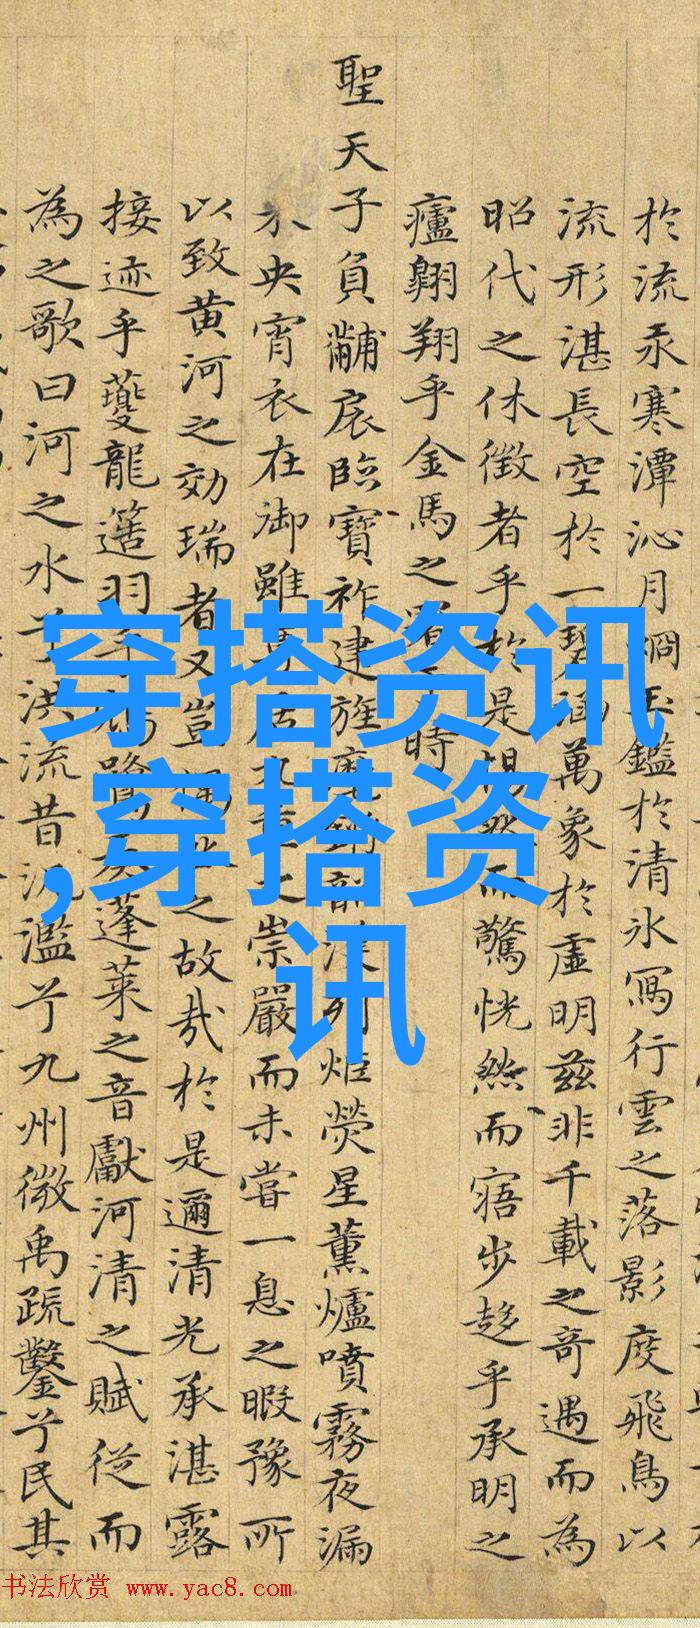 於流汞寒潭沁月炯玉鑑於清冰寫行雲之落影度飛鳥以
流形湛長空於一碧涵萬象於虛明茲非千載之奇遇而為
昭代之休徵者乎於是惕然而驚恍然而寤步趍乎承明之
廬翺翔乎金馬之署于時
聖天子負黼扆臨寶祚建旌列炬熒星薰爐噴霧夜漏
未央宵衣在御雖之崇嚴而未嘗一息之暇豫所
以致黄河之効瑞者又豈之故哉於是邇清光承湛露
接迹乎夔龍簉羽乎鷺蓬莱之音獻河清之賦從而
為之歌曰河之水兮洪流昔汎濫兮九州微禹疏鑿兮民其
穿搭资讯
,穿搭资
讯
书法欣赏 www.yac8.com